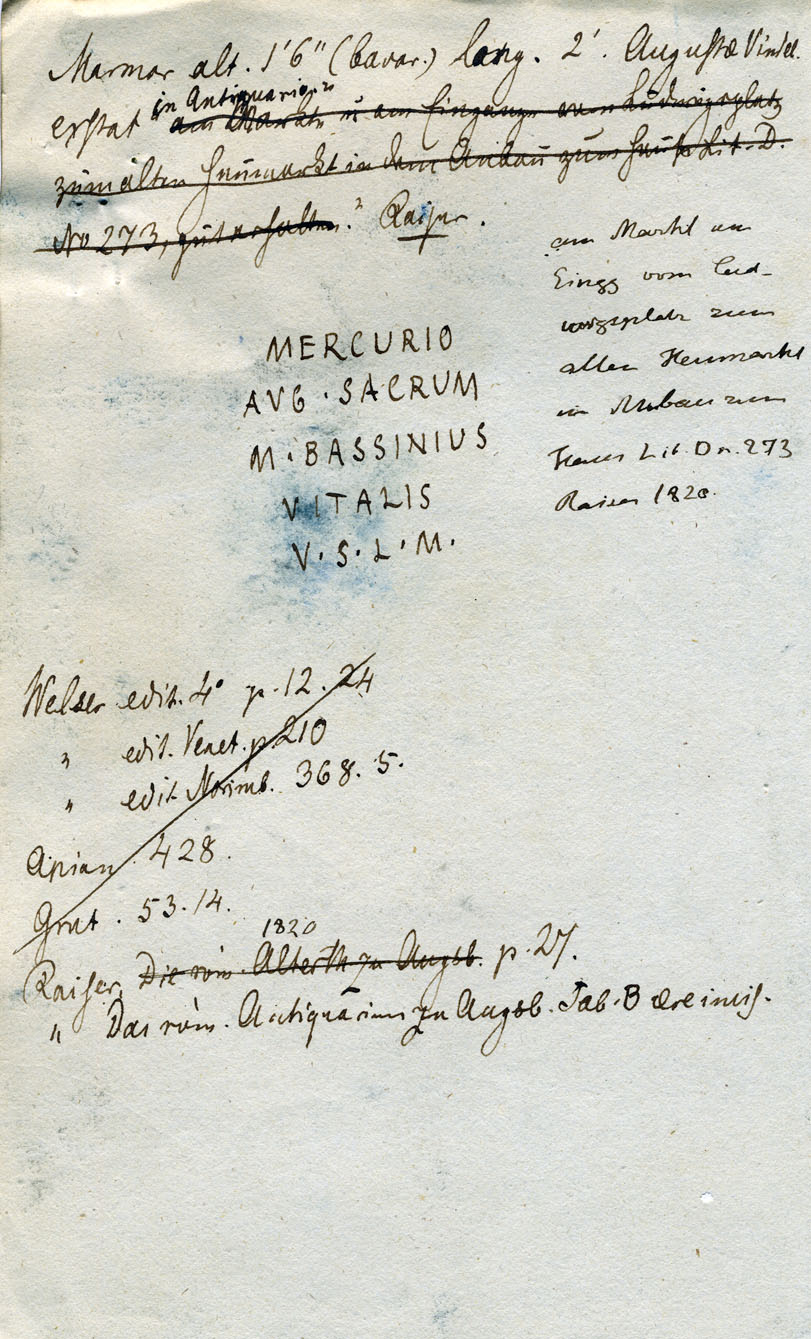 Marmor alt. 1'6" (bavar.) long. 2'. Augustæ Vindel.
in Antiquario."
exstat "am Markte u am Eingange vom Ludwigsplatz
zum alten Heumarkt in dem Anbau zum Hause Lit. D.
No 273, gut erhalten." Raiser.
am Markt am
Eingg vom Lud-
wigsplatz zum
alten Heumarkt
im Anbau zum
Haus Lit. D n. 273
Raiser 1820.
MERCURIO
AVG · SACRUM
M · BASSINIUS
VITALIS
V · S · L · M ·
Welser edit. 4° p. 12. 24
" edit. Venet. p. 210
" edit Norimb. 368. 5.
Apian 428.
Grut. 53. 14.
1820
Raiser, Die röm. Alterth zu Augsb. p. 27.
" Das röm. Antiquarium zu Augsb. Tab. B ære incis.